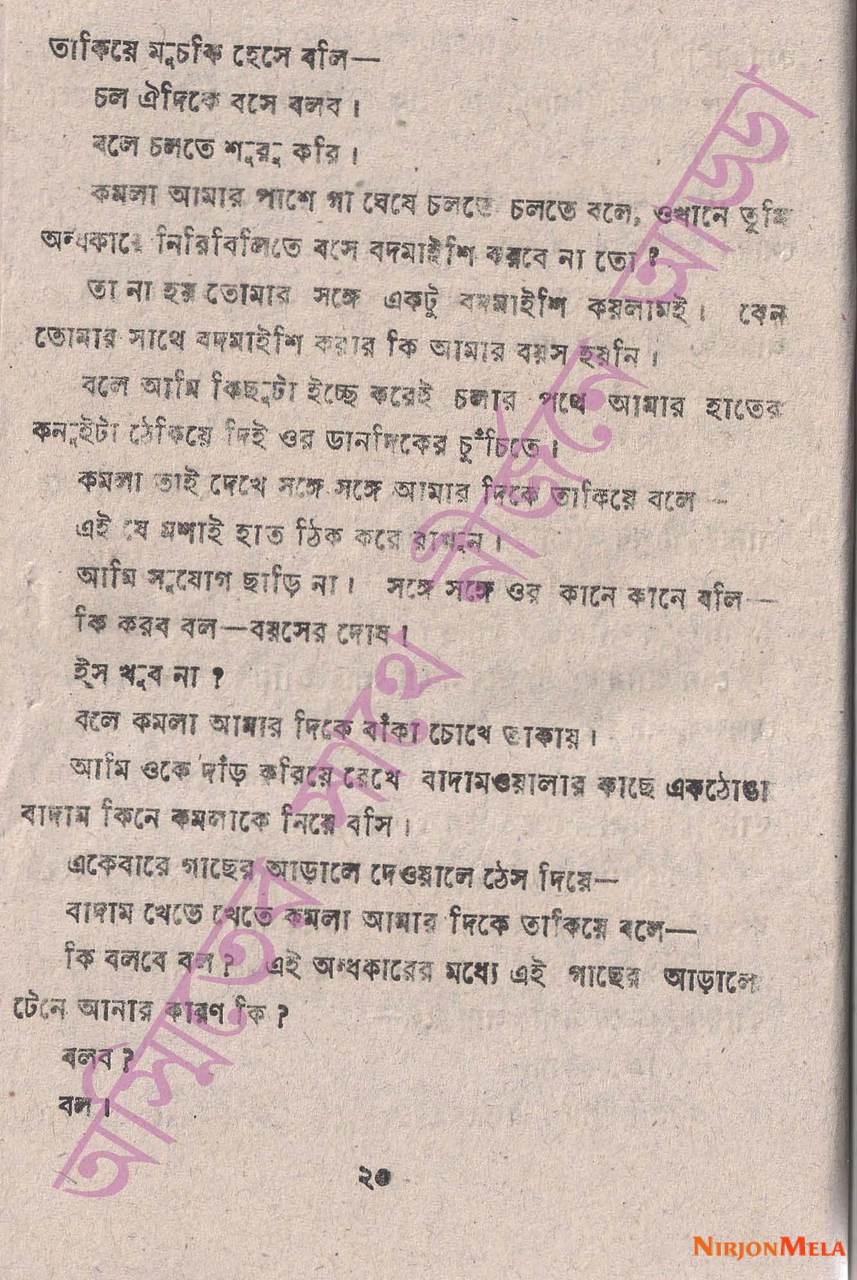 তাকিয়ে মুচকি হেসে বলি—
চল ঐদিকে বসে বলব।
বলে চলতে শুরু করি।
কমলা আমার পাশে গা ঘেষে চলতে চলতে বলে, ওখানে তুমি
অন্ধকারে নিরিবিলিতে বসে বদমাইশি করবে না তো?
তা না হয় তোমার সঙ্গে একটু বদমাইশি করলামই। কেন
তোমার সাথে বদমাইশি করার কি আমার বয়স হয়নি।
বলে আমি কিছুটা ইচ্ছে করেই চলার পথে আমার হাতের
কনুইটা ঠেকিয়ে দিই ওর ডানদিকের চুঁচিতে।
কমলা তাই দেখে সঙ্গে সঙ্গে আমার দিকে তাকিয়ে বলে—
এই যে মশাই হাত ঠিক করে রাখুন।
আমি সুযোগ ছাড়ি না। সঙ্গে সঙ্গে ওর কানে কানে বলি—
কি করব বল—বয়সের দোষ।
ইস খুব না?
বলে কমলা আমার দিকে বাঁকা চোখে তাকায়।
আমি ওকে দাঁড় করিয়ে রেখে বাদামওয়ালার কাছে একঠোঙা
বাদাম কিনে কমলাকে নিয়ে বসি।
একেবারে গাছের আড়ালে দেওয়ালে ঠেস দিয়ে—
বাদাম খেতে খেতে কমলা আমার দিকে তাকিয়ে বলে—
কি বলবে বল? এই অন্ধকারের মধ্যে এই গাছের আড়ালে
টেনে আনার কারণ কি?
বলব?
বল।
২০
অস্মিতের সাথে নির্জনে আড্ডা
NIRJONMELA